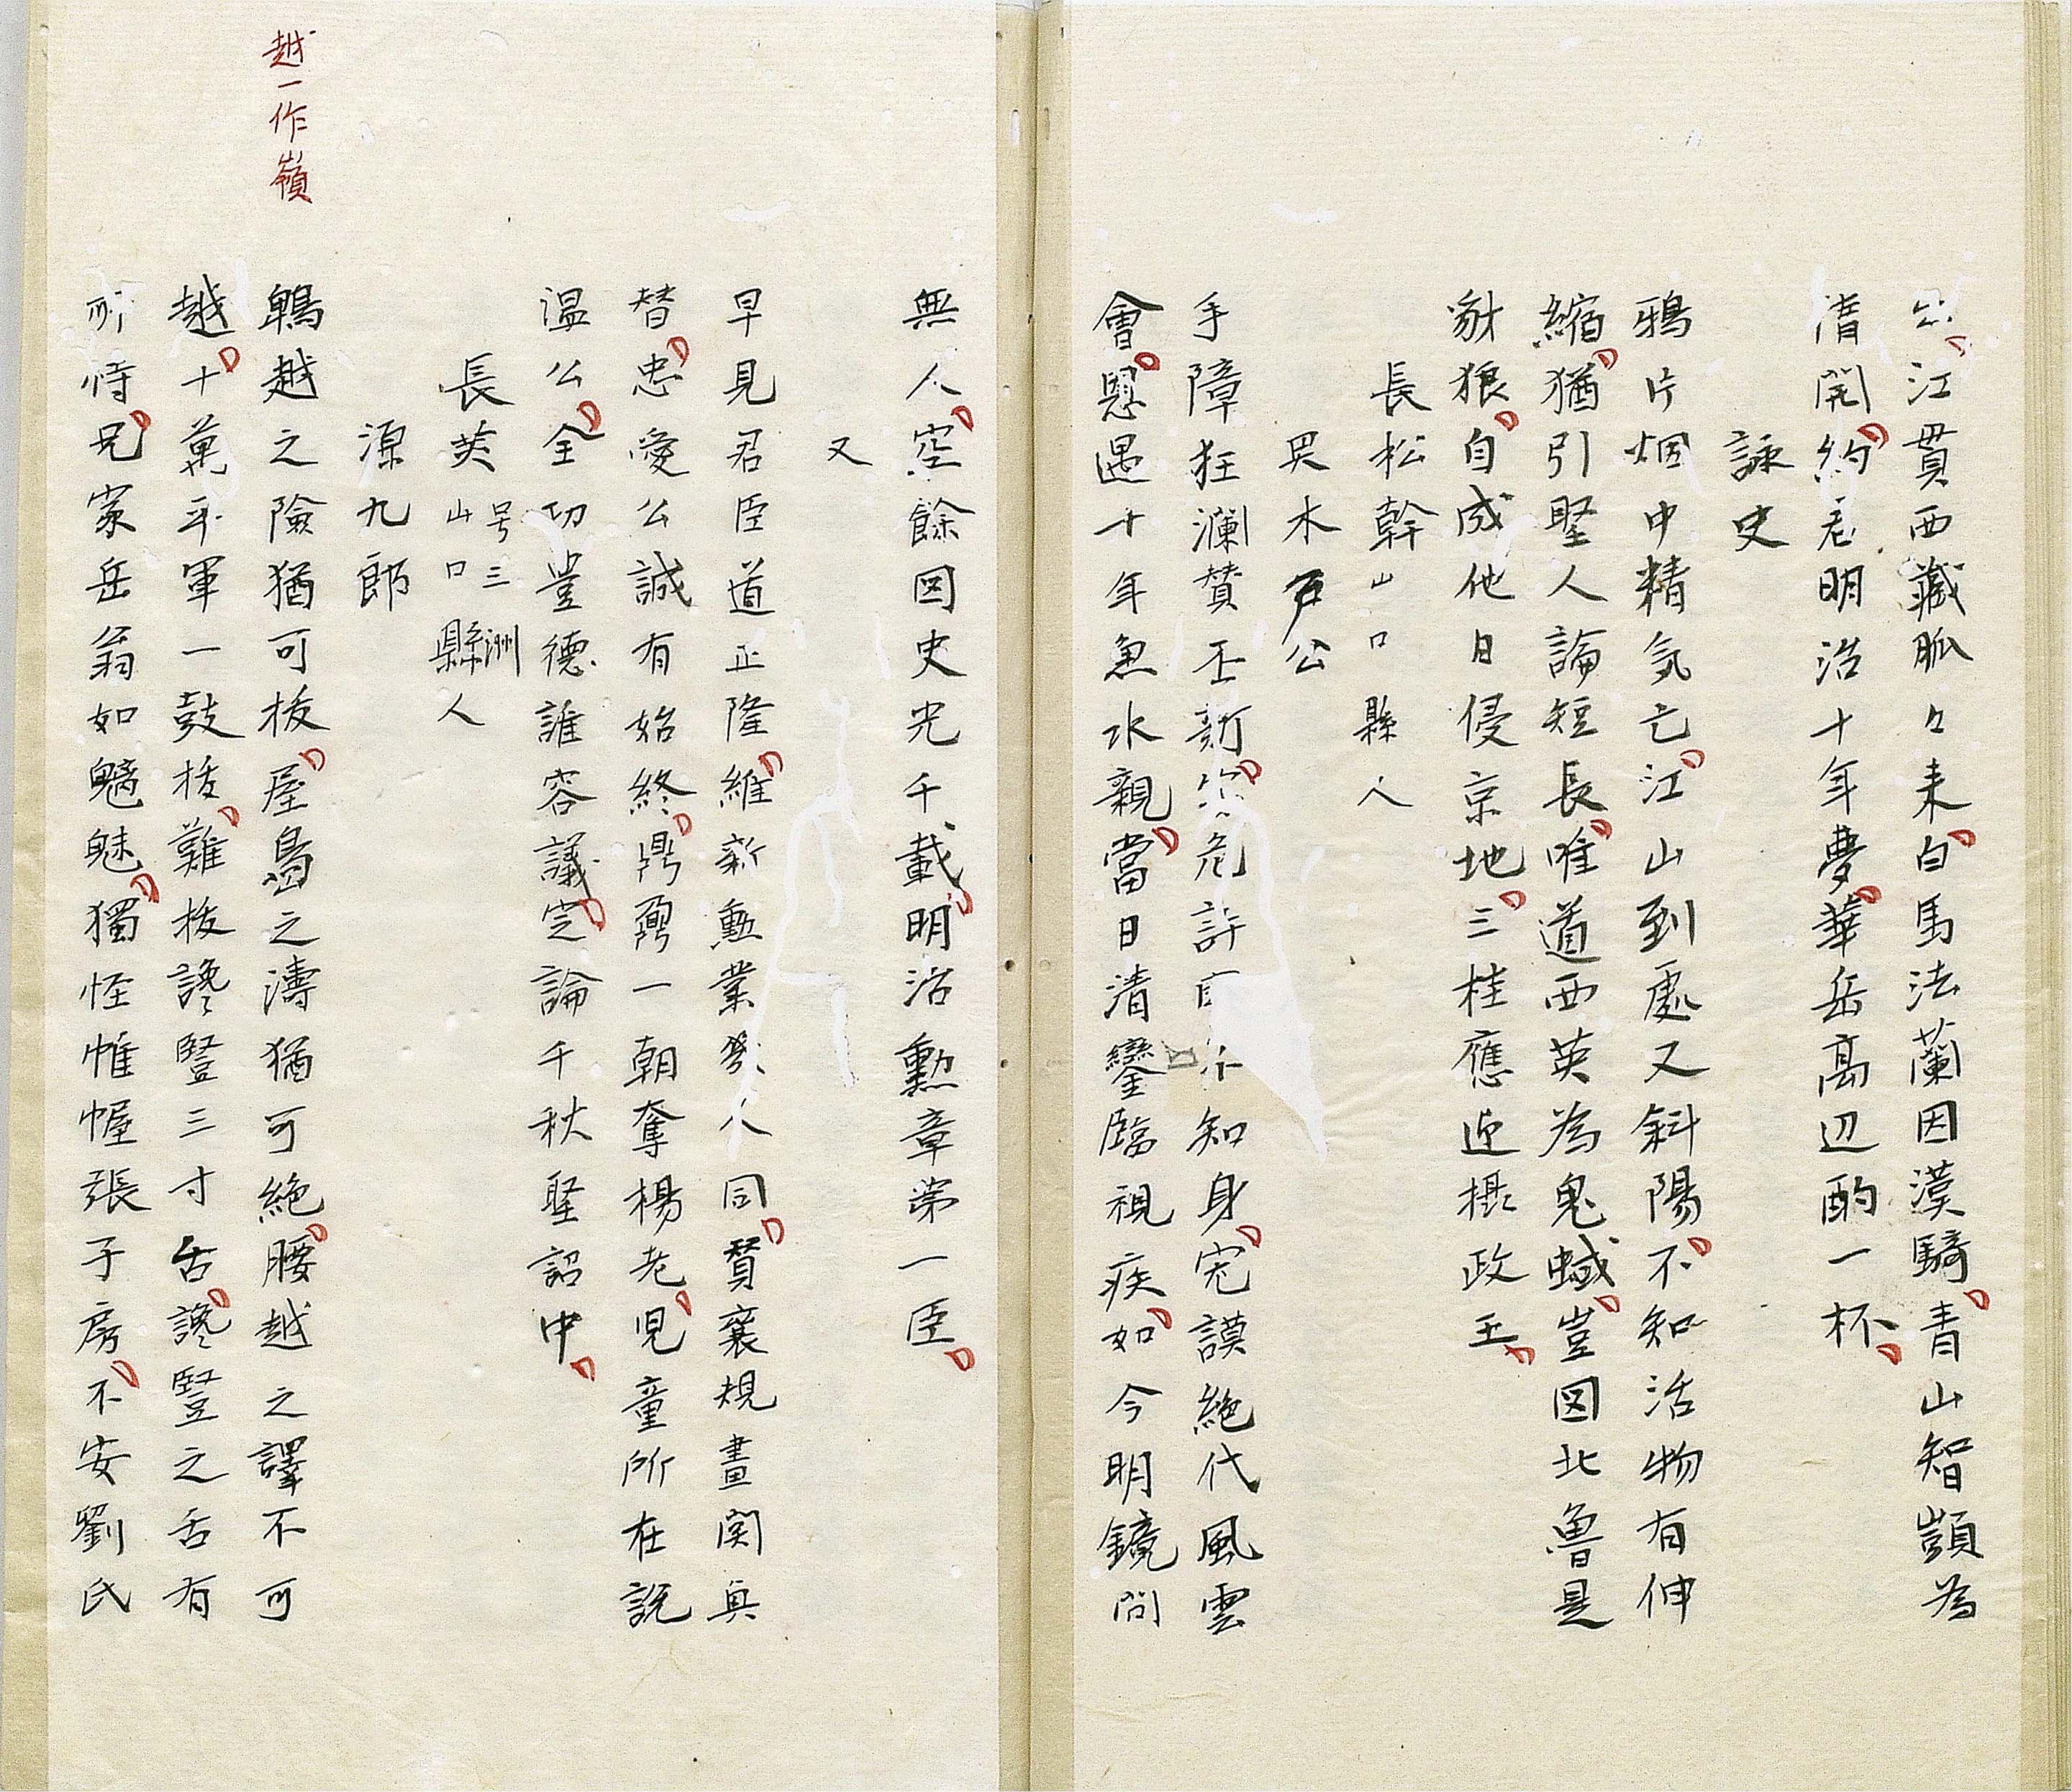 江貫西蔵脈々来白馬法蘭因漢騎青山智顗為
清開約君明治十年夢華岳高辺酌一杯
詠史
鴉片烟中精気亡江山到処又斜陽不知活物有伸
縮猶引聖人論短長唯道西英為鬼蜮豈図北魯是
豺狼自成他日侵京地三桂応迎摂政王
長松幹山口縣人
哭木戸公
手障狂瀾賛丕新安危許国不知身宏謨絶代風雲
會恩遇十年魚水親當日清鑾臨視疾如今明鏡問
無人空餘図史光千載明治勲章第一臣
又
早見君臣道正隆維新勲業幾人同賛襄規畫関興
替忠愛公誠有始終鼎鼐一朝奪楊老児童所在説
温公全功豊徳誰容議定論千秋聖詔中
長英号三洲山口縣人
源九郎
鵯越之險猶可抜屋島之濤猶可絶腰越之譯不可
越十萬平軍一鼓抜難抜讒豎三寸舌讒豎之舌有
所恃兄家岳翁如魑魅獨怪帷幄張子房不安劉氏
越一作嶺